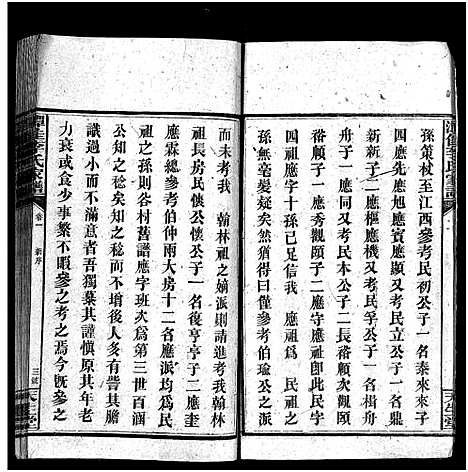 孫策杖至江西參考民初公子一名泰來來子
四應先應旭應賓應顯又考民立公子一名鼎
新新子二應樞應機又考民三公子一名楫舟
裕舟子一應秀觀頤子二應守應裕以上應字
祖四應字十孫已足信我 應祖爲 應民公
孫無毫髮疑矣然猶得曰僅參考伯瑜公之派
而未考我 翰林祖之嫡派則請進考我翰林
祖長房民懷公懷公子一名復亨亨子二應奎
應霖總參考伯仲兩大房十二名應派均爲民
祖之孫則谷村舊譜應字班次爲第三世百涸
公知之爲恐公知之而不增後人多有訾其膽
識過小而不滿意者吾獨葉其謹愼原其年老
力衰或食少事繁不暇參之考之焉今既參之
潭 李氏 譜
卷一 新序
三 天生堂